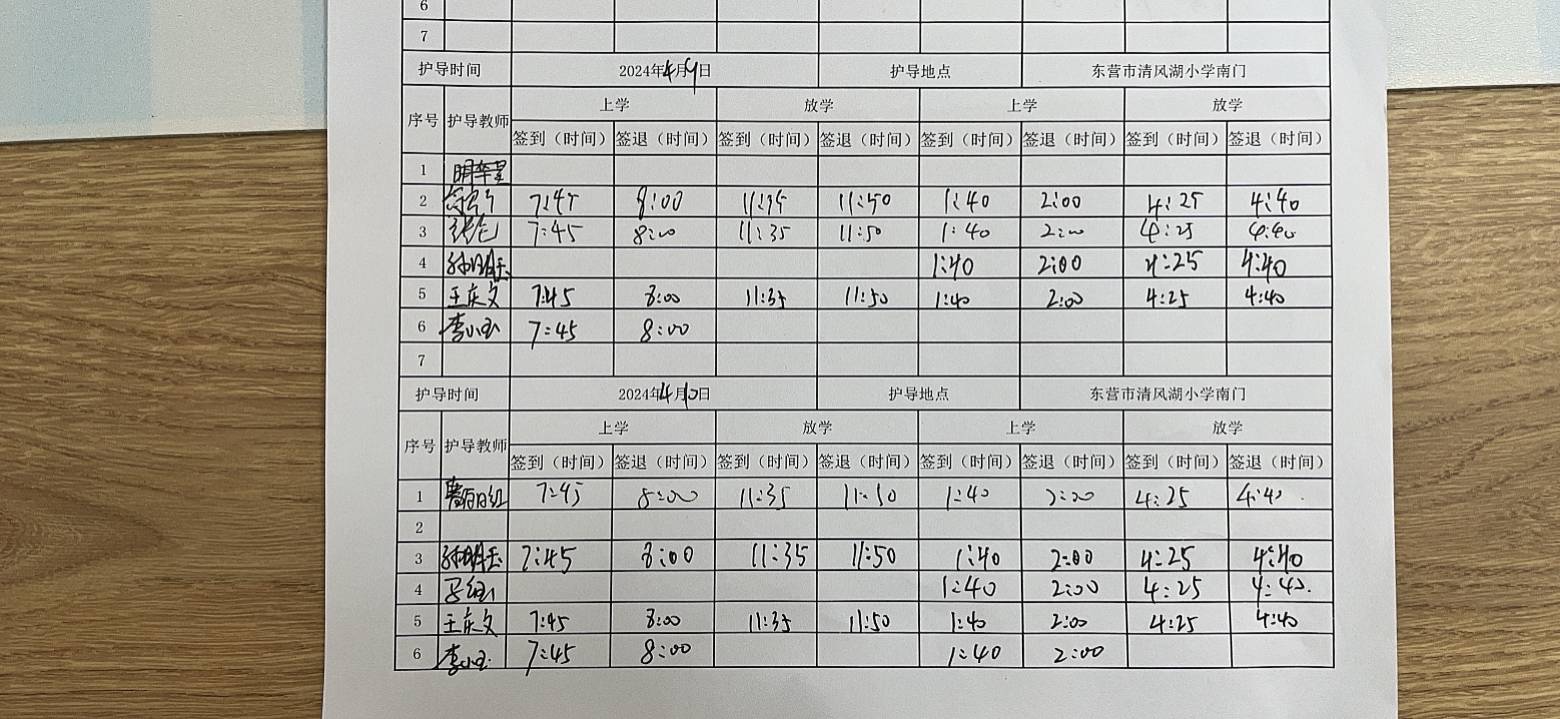 6
7
护导时间 2024年4月9日 护导地点 东营市清风湖小学南门
序号 护导教师 上学 放学 上学 放学
签到（时间） 签退（时间） 签到（时间） 签退（时间） 签到（时间） 签退（时间） 签到（时间） 签退（时间）
1
2 7:45 8:00 11:35 11:50 1:40 2:00 4:25 4:40
3 7:45 8:00 11:35 11:50 1:40 2:00 4:25 4:40
4 1:40 2:00 4:25 4:40
5 王庆文 7:45 8:00 11:35 11:50 1:40 2:00 4:25 4:40
6 李小玉 7:45 8:00
7
护导时间 2024年4月10日 护导地点 东营市清风湖小学南门
序号 护导教师 上学 放学 上学 放学
签到（时间） 签退（时间） 签到（时间） 签退（时间） 签到（时间） 签退（时间） 签到（时间） 签退（时间）
1 7:45 8:00 11:35 11:50 1:40 2:00 4:25 4:40
2
3 7:45 8:00 11:35 11:50 1:40 2:00 4:25 4:40
4 1:40 2:00 4:25 4:40
5 王庆文 7:45 8:00 11:35 11:50 1:40 2:00 4:25 4:40
6 李小玉 7:45 8:00 1:40 2:00